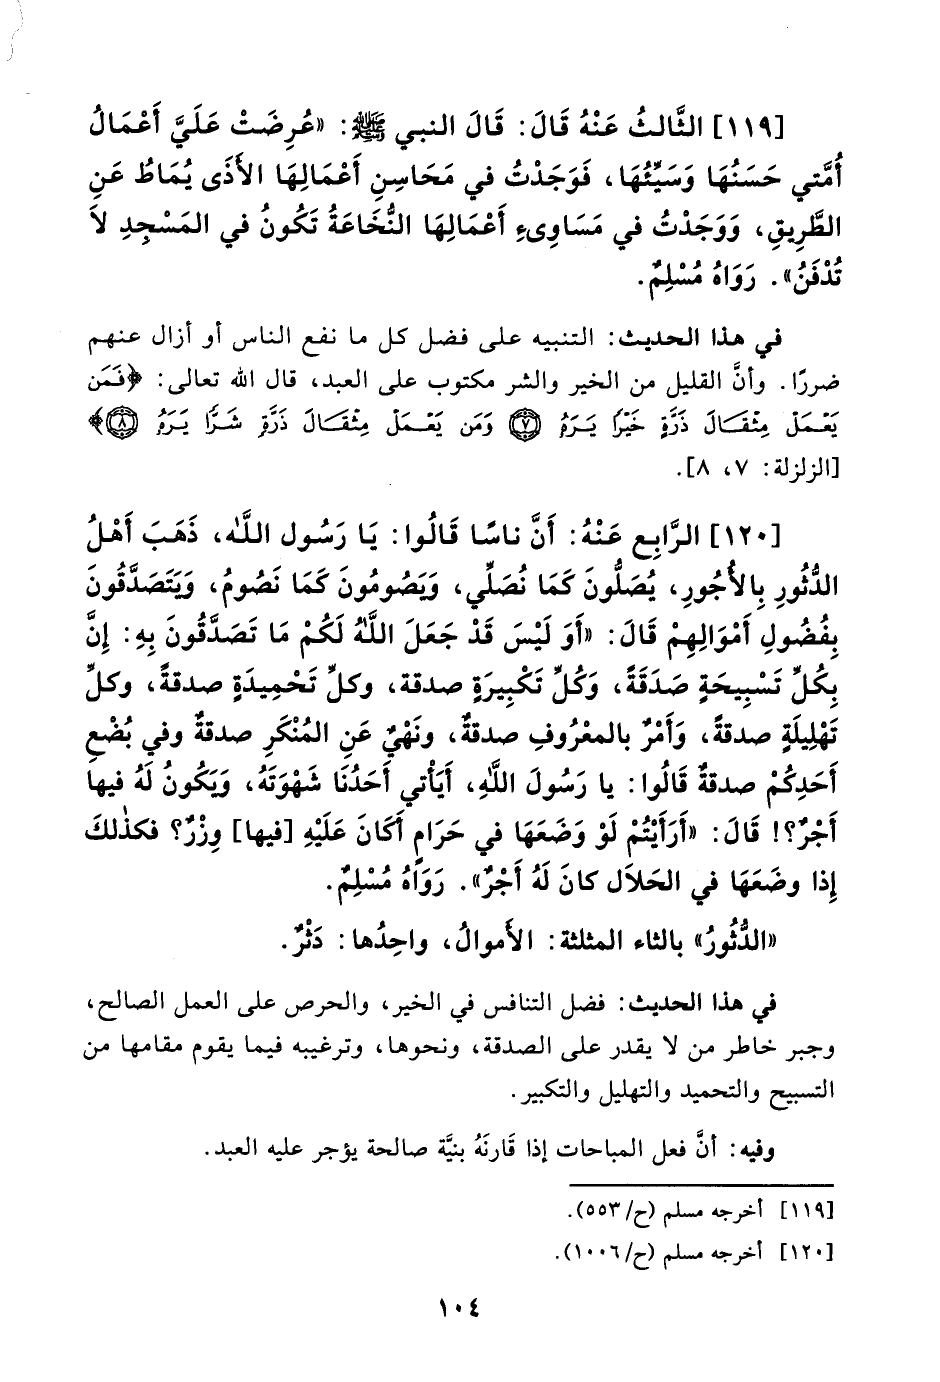 [١١٩] الثَّالثُ عَنْهُ قَالَ: قَالَ النبي ﷺ: «عُرِضَتْ عَلَيَّ أَعْمَالُ
أُمَّتي حَسَنُهَا وَسَيِّئُهَا، فَوَجَدْتُ في مَحَاسِنِ أَعْمَالِهَا الأَذَى يُمَاطُ عَنِ
الطَّرِيقِ، وَوَجَدْتُ في مَسَاوِىءِ أَعْمَالِهَا النُّخَاعَةُ تَكُونُ في المَسْجِدِ لاَ
تُدْفَنُ». رَوَاهُ مُسْلِمٌ.
في هذا الحديث: التنبيه على فضل كل ما نفع الناس أو أزال عنهم
ضررًا. وأنَّ القليل من الخير والشر مكتوب على العبد، قال الله تعالى: ﴿فَمَن
يَعْمَلْ مِثْقَالَ ذَرَّةٍ خَيْرًا يَرَهُ ۝٧ وَمَن يَعْمَلْ مِثْقَالَ ذَرَّةٍ شَرًّا يَرَهُ ۝٨﴾
[الزلزلة: ٧، ٨].
[١٢٠] الرَّابِع عَنْهُ: أَنَّ ناسًا قَالُوا: يَا رَسُول اللَّه، ذَهَبَ أَهْلُ
الدُّثُورِ بِالأُجُورِ، يُصَلُّونَ كَمَا نُصَلِّي، وَيَصُومُونَ كَمَا نَصُومُ، وَيَتَصَدَّقُونَ
بِفُضُولِ أَمْوَالِهِمْ قَالَ: «أَوَ لَيْسَ قَدْ جَعَلَ اللَّهُ لَكُمْ مَا تَصَدَّقُونَ بِهِ: إِنَّ
بِكُلِّ تَسْبِيحَةٍ صَدَقَةً، وَكُلِّ تَكْبِيرَةٍ صدقة، وكلِّ تَحْمِيدَةٍ صدقةً، وكلِّ
تَهْلِيلَةٍ صدقةً، وَأَمْرٌ بالمعْرُوفِ صدقةٌ، ونَهْيٌ عَنِ المُنْكَرِ صدقةٌ وفي بُضْعِ
أَحَدِكُمْ صدقةٌ قَالُوا: يا رَسُولَ اللَّهِ، أَيَأْتي أَحَدُنَا شَهْوَتَهُ، وَيَكُونُ لَهُ فيها
أَجْرٌ؟! قَالَ: «أَرَأَيْتُمْ لَوْ وَضَعَهَا في حَرَامٍ أَكَانَ عَلَيْهِ [فيها] وِزْرٌ؟ فكذٰلكَ
إِذا وضَعَهَا في الحَلاَل كانَ لَهُ أَجْرٌ». رَوَاهُ مُسْلِمٌ.
«الدُّثُورُ» بالثاء المثلثة: الأَموالُ، واحِدُها: دَثْرٌ.
في هذا الحديث: فضل التنافس في الخير، والحرص على العمل الصالح،
وجبر خاطر من لا يقدر على الصدقة، ونحوها، وترغيبه فيما يقوم مقامها من
التسبيح والتحميد والتهليل والتكبير.
وفيه: أنَّ فعل المباحات إذا قَارَنَهُ بنيَّة صالحة يؤجر عليه العبد.
[١١٩] أخرجه مسلم (ح/٥٥٣).
[١٢٠] أخرجه مسلم (ح/١٠٠٦).
١٠٤